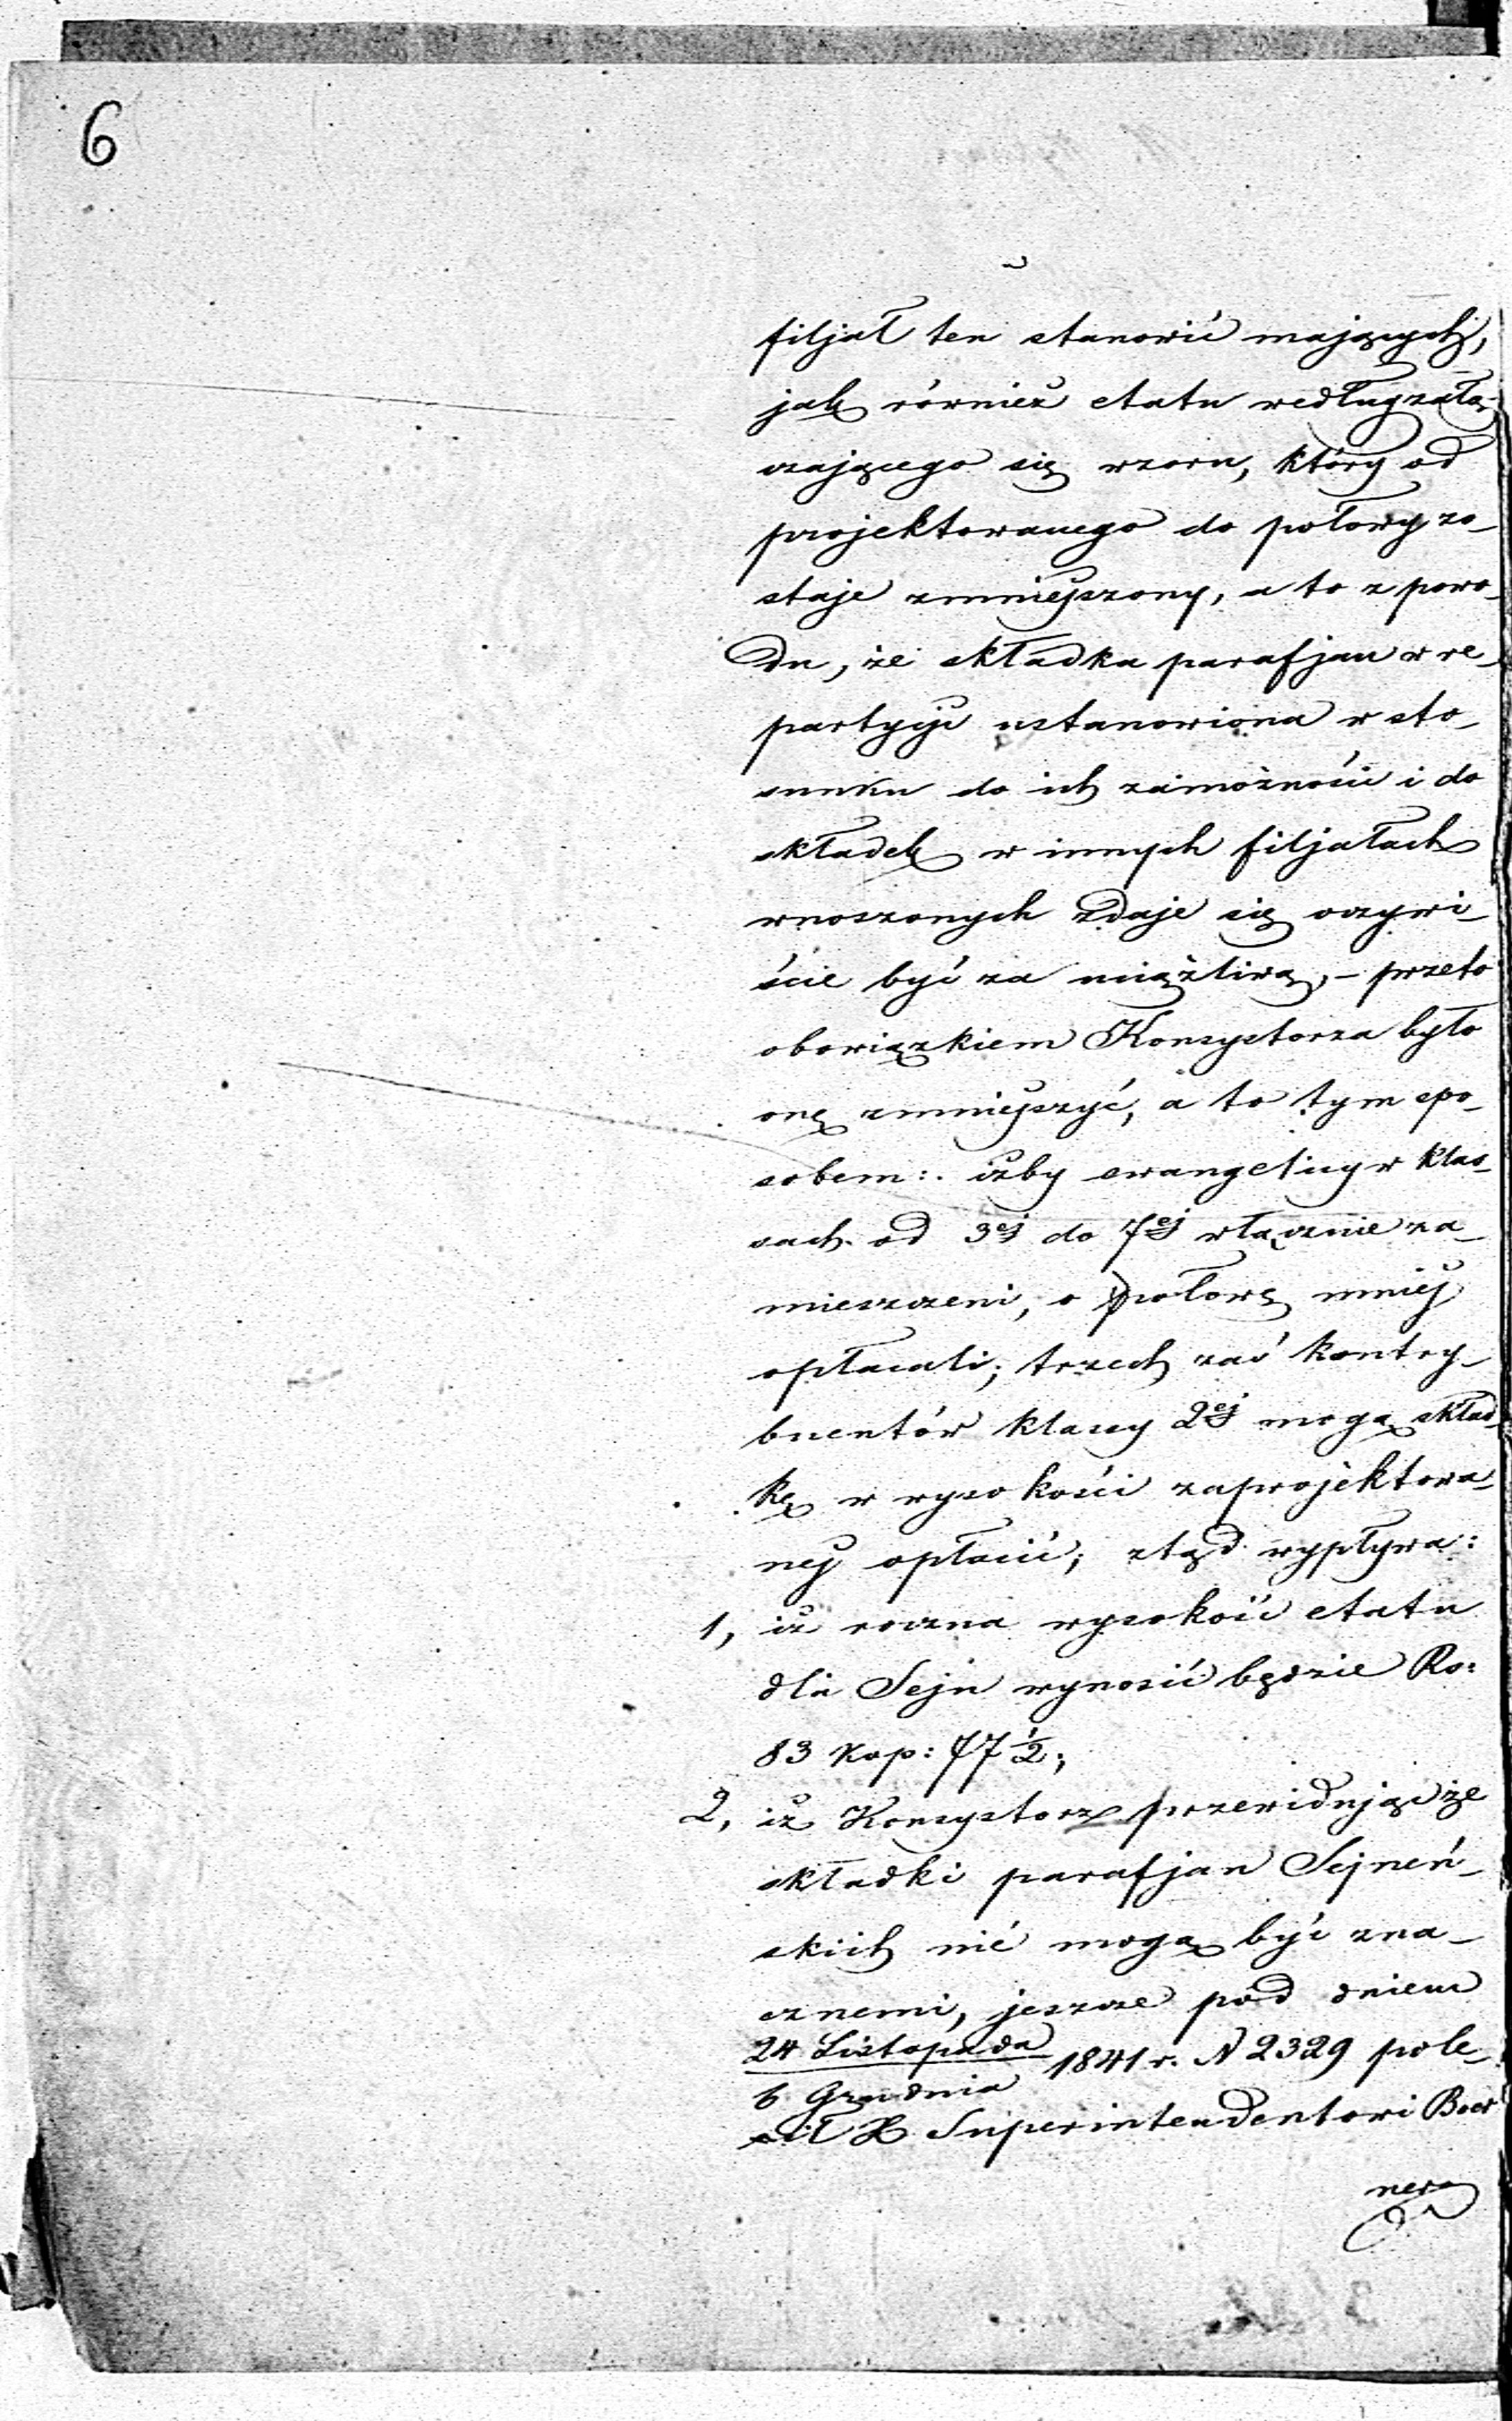 6
filjał ten stanowić mających,
jak również etatu według załą-
czającego się wzoru, który od
projektowanego do połowy zo-
staje zmniejszony, a to z powo-
du, że składka parafjan w re-
partycyi ustanowiona w sto-
sunku do ich zamożności i do
składek w innych filjałach
wnoszonych zdaje się oczywi-
ście być za uciążliwą, - przeto
obowiązkiem Konsystorza było
onę zmniejszyć, a to tym spo-
sobem: iżby ewangelicy w klas-
sach od 3ej do 7ej włącznie za-
mieszczeni, o połowę mniej
opłacali; trzech zaś kontry-
buentów klassy 2ej mogą skład-
kę w wysokości zaprojektowa-
nej opłacić; ztąd wypływa:
1, iż roczna wysokość etatu
dla Sejn wynosić będzie Rs:
83 kop: 77 1/2;
2, iż Konsystorz przewidując że
składki parafjan Sejneń-
skich nie mogą być zna-
cznemi, jeszcze pod dniem
24 Listopada
6 Grudnia 1841 r. N 2329 pole-
cił X Superintendentowi Boer
nera